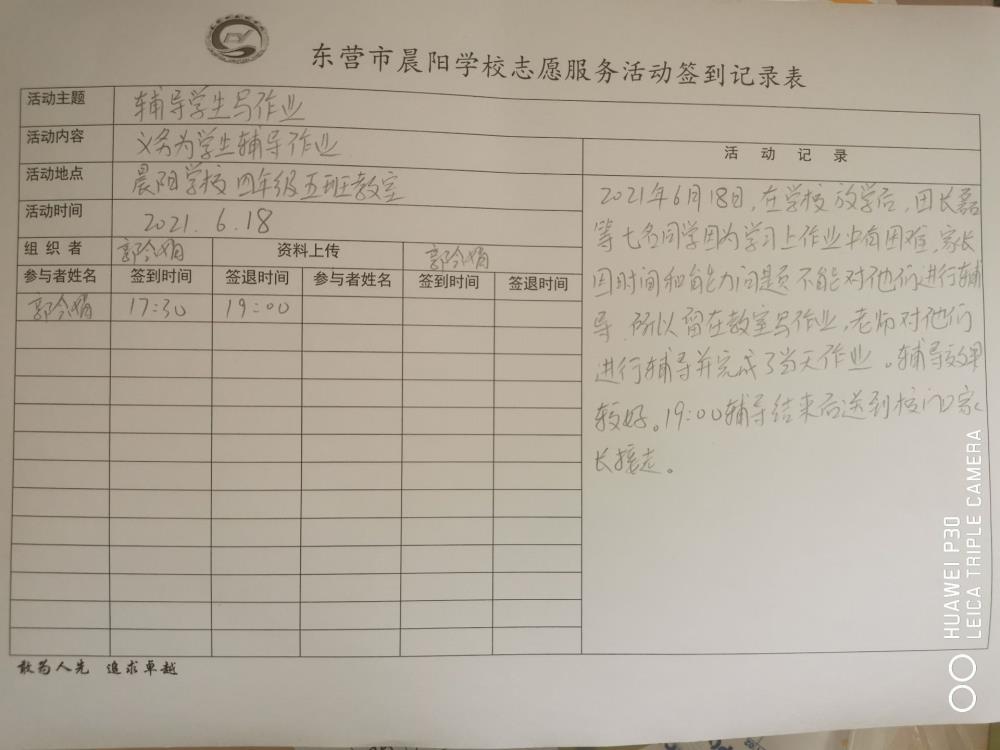 东营市晨阳学校志愿服务活动签到记录表
活动主题 辅导学生写作业
活动内容 义务为学生辅导作业
活动地点 晨阳学校四年级五班教室
活动时间 2021.6.18
组织者 郭令娟 资料上传 郭令娟
参与者姓名 签到时间 签退时间 参与者姓名 签到时间 签退时间
郭令娟 17:30 19:00
活动记录
2021年6月18日,在学校放学后,田长磊
等七名同学因为学习上作业中有困难,家长
因时间和能力问题不能对他们进行辅
导,所以留在教室写作业,老师对他们
进行辅导并完成了当天作业。辅导效果
较好。19:00辅导结束后送到校门口家
长接走。
敢为人先 追求卓越
HUAWEI P30
LEICA TRIPLE CAMERA